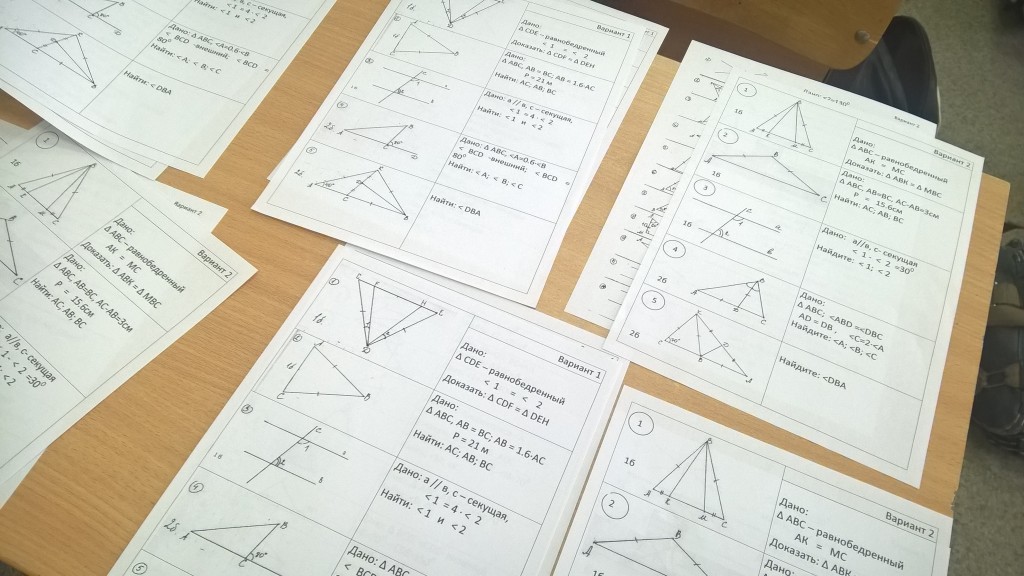 1 = < 2
Дано: Δ ABC, <A=0.6·<B
< BCD -внешний; < BCD =
80⁰
Найти: <A; < B; <C
Найти: < DBA
Вариант 1
Дано:
Δ CDE – равнобедренный
< 1 = < 2
Доказать: Δ CDF = Δ DEH
Дано:
Δ ABC, AB = BC; AB = 1.6·AC
P = 21 м
Найти: AC; AB; BC
Дано: a // в, с – секущая,
< 1 = 4 · < 2
Найти: < 1 и < 2
Дано: Δ ABC, <A=0.6·<B
< BCD -внешний; < BCD =
80⁰
Найти: <A; < B; <C
Найти: < DBA
Вариант 2
Вариант 2
1
Дано:
Δ ABC – равнобедренный
AK = MC
Доказать: Δ ABK = Δ MBC
1б
2
Дано:
Δ ABC, AB=BC, AC-AB=3см
P = 15.6см
Найти: AC; AB; BC
1б
3
Дано: a//в, с – секущая
< 1 - < 2 =30⁰
Найдите: <1; <2
1б
4
Дано:
Δ ABC; <ABD =<DBC
AD = DB , <C=2·<A
Найдите: <A; <B; <C
2б
5
Найдите: <DBA
2б
Вариант 2
Вариант 2
Дано:
Δ ABC – равнобедренный
AK = MC
Доказать: Δ ABK = Δ MBC
1б
Дано:
Δ ABC, AB=BC, AC-AB=3см
P = 15.6см
Найти: AC; AB; BC
a//в, с – секущая
1 - < 2 =30⁰
Вариант 1
Дано:
Δ CDE – равнобедренный
< 1 = < 2
Доказать: Δ CDF = Δ DEH
1б
Дано:
Δ ABC, AB = BC; AB = 1.6·AC
P = 21 м
Найти: AC; AB; BC
1б
3
Дано: a // в, с – секущая,
< 1 = 4 · < 2
Найти: < 1 и < 2
1б
4
Дано: Δ ABC
2б
5
Вариант 2
1
Дано:
Δ ABC – равнобедренный
AK = MC
Доказать: Δ ABK
1б
2
Дано:
1б